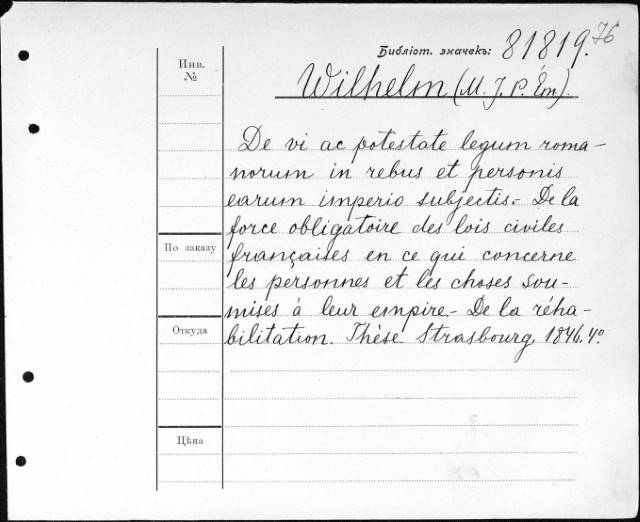 Библіот. значекъ: 81819. 76
Инв. №
Wilhelm (M. J. P. Ém).
De vi ac potestate legum roma-
norum in rebus et personis
earum imperio subjectis.- De la
force obligatoire des lois civiles
françaises en ce qui concerne
По заказу
les personnes et les choses sou-
mises à leur empire.- De la réha-
Откуда
bilitation. Thèse. Strasbourg, 1846. 4º
Цѣна